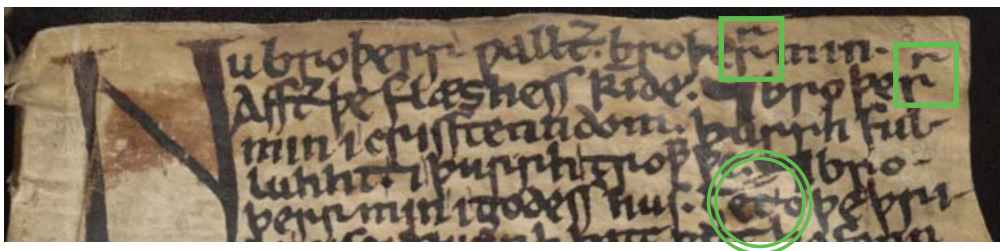 Nu broþerr wallt͛. broþerr min.
Afft͛ þe flæshess kide. ⁊ broþerr
min i crisstenndom. þurrh ful-
luhht. ⁊ þurrh trowwþe. ⁊ bro-
þerr min i godess hus. ȝet o þe þri